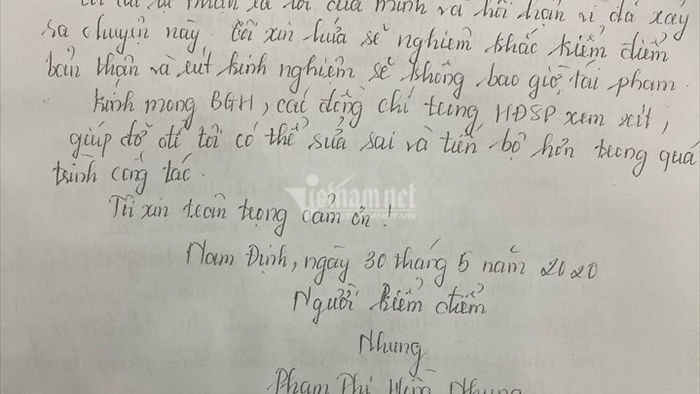 của mình và hối hận vì đã xảy
ra chuyện này. Tôi xin hứa sẽ nghiêm khắc kiểm điểm
bản thân và rút kinh nghiệm sẽ không bao giờ tái phạm.
Kính mong BGH, các đồng chí trong HĐSP xem xét,
giúp đỡ để tôi có thể sửa sai và tiến bộ hơn trong quá
trình công tác.
Vietnamnet
Tôi xin trân trọng cảm ơn!
Nam Định, ngày 30 tháng 5 năm 2020
Người kiểm điểm
Nhung
Phạm Thị Nhung